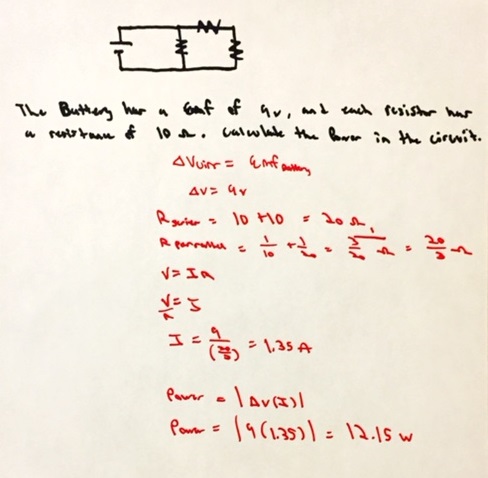 The Battery has a emf of 9v, and each resistor has
a resistance of 10 Ω. Calculate the Power in the circuit.
ΔVcirc = emf Battery
ΔV = 9v
R series = 10 + 10 = 20 Ω
R parrallel = 1/10 + 1/20 = 3/20 Ω = 20/3 Ω
V = IR
V/R = I
I = 9/(20/3) = 1.35 A
Power = |ΔV(I)|
Power = |9(1.35)| = 12.15 w